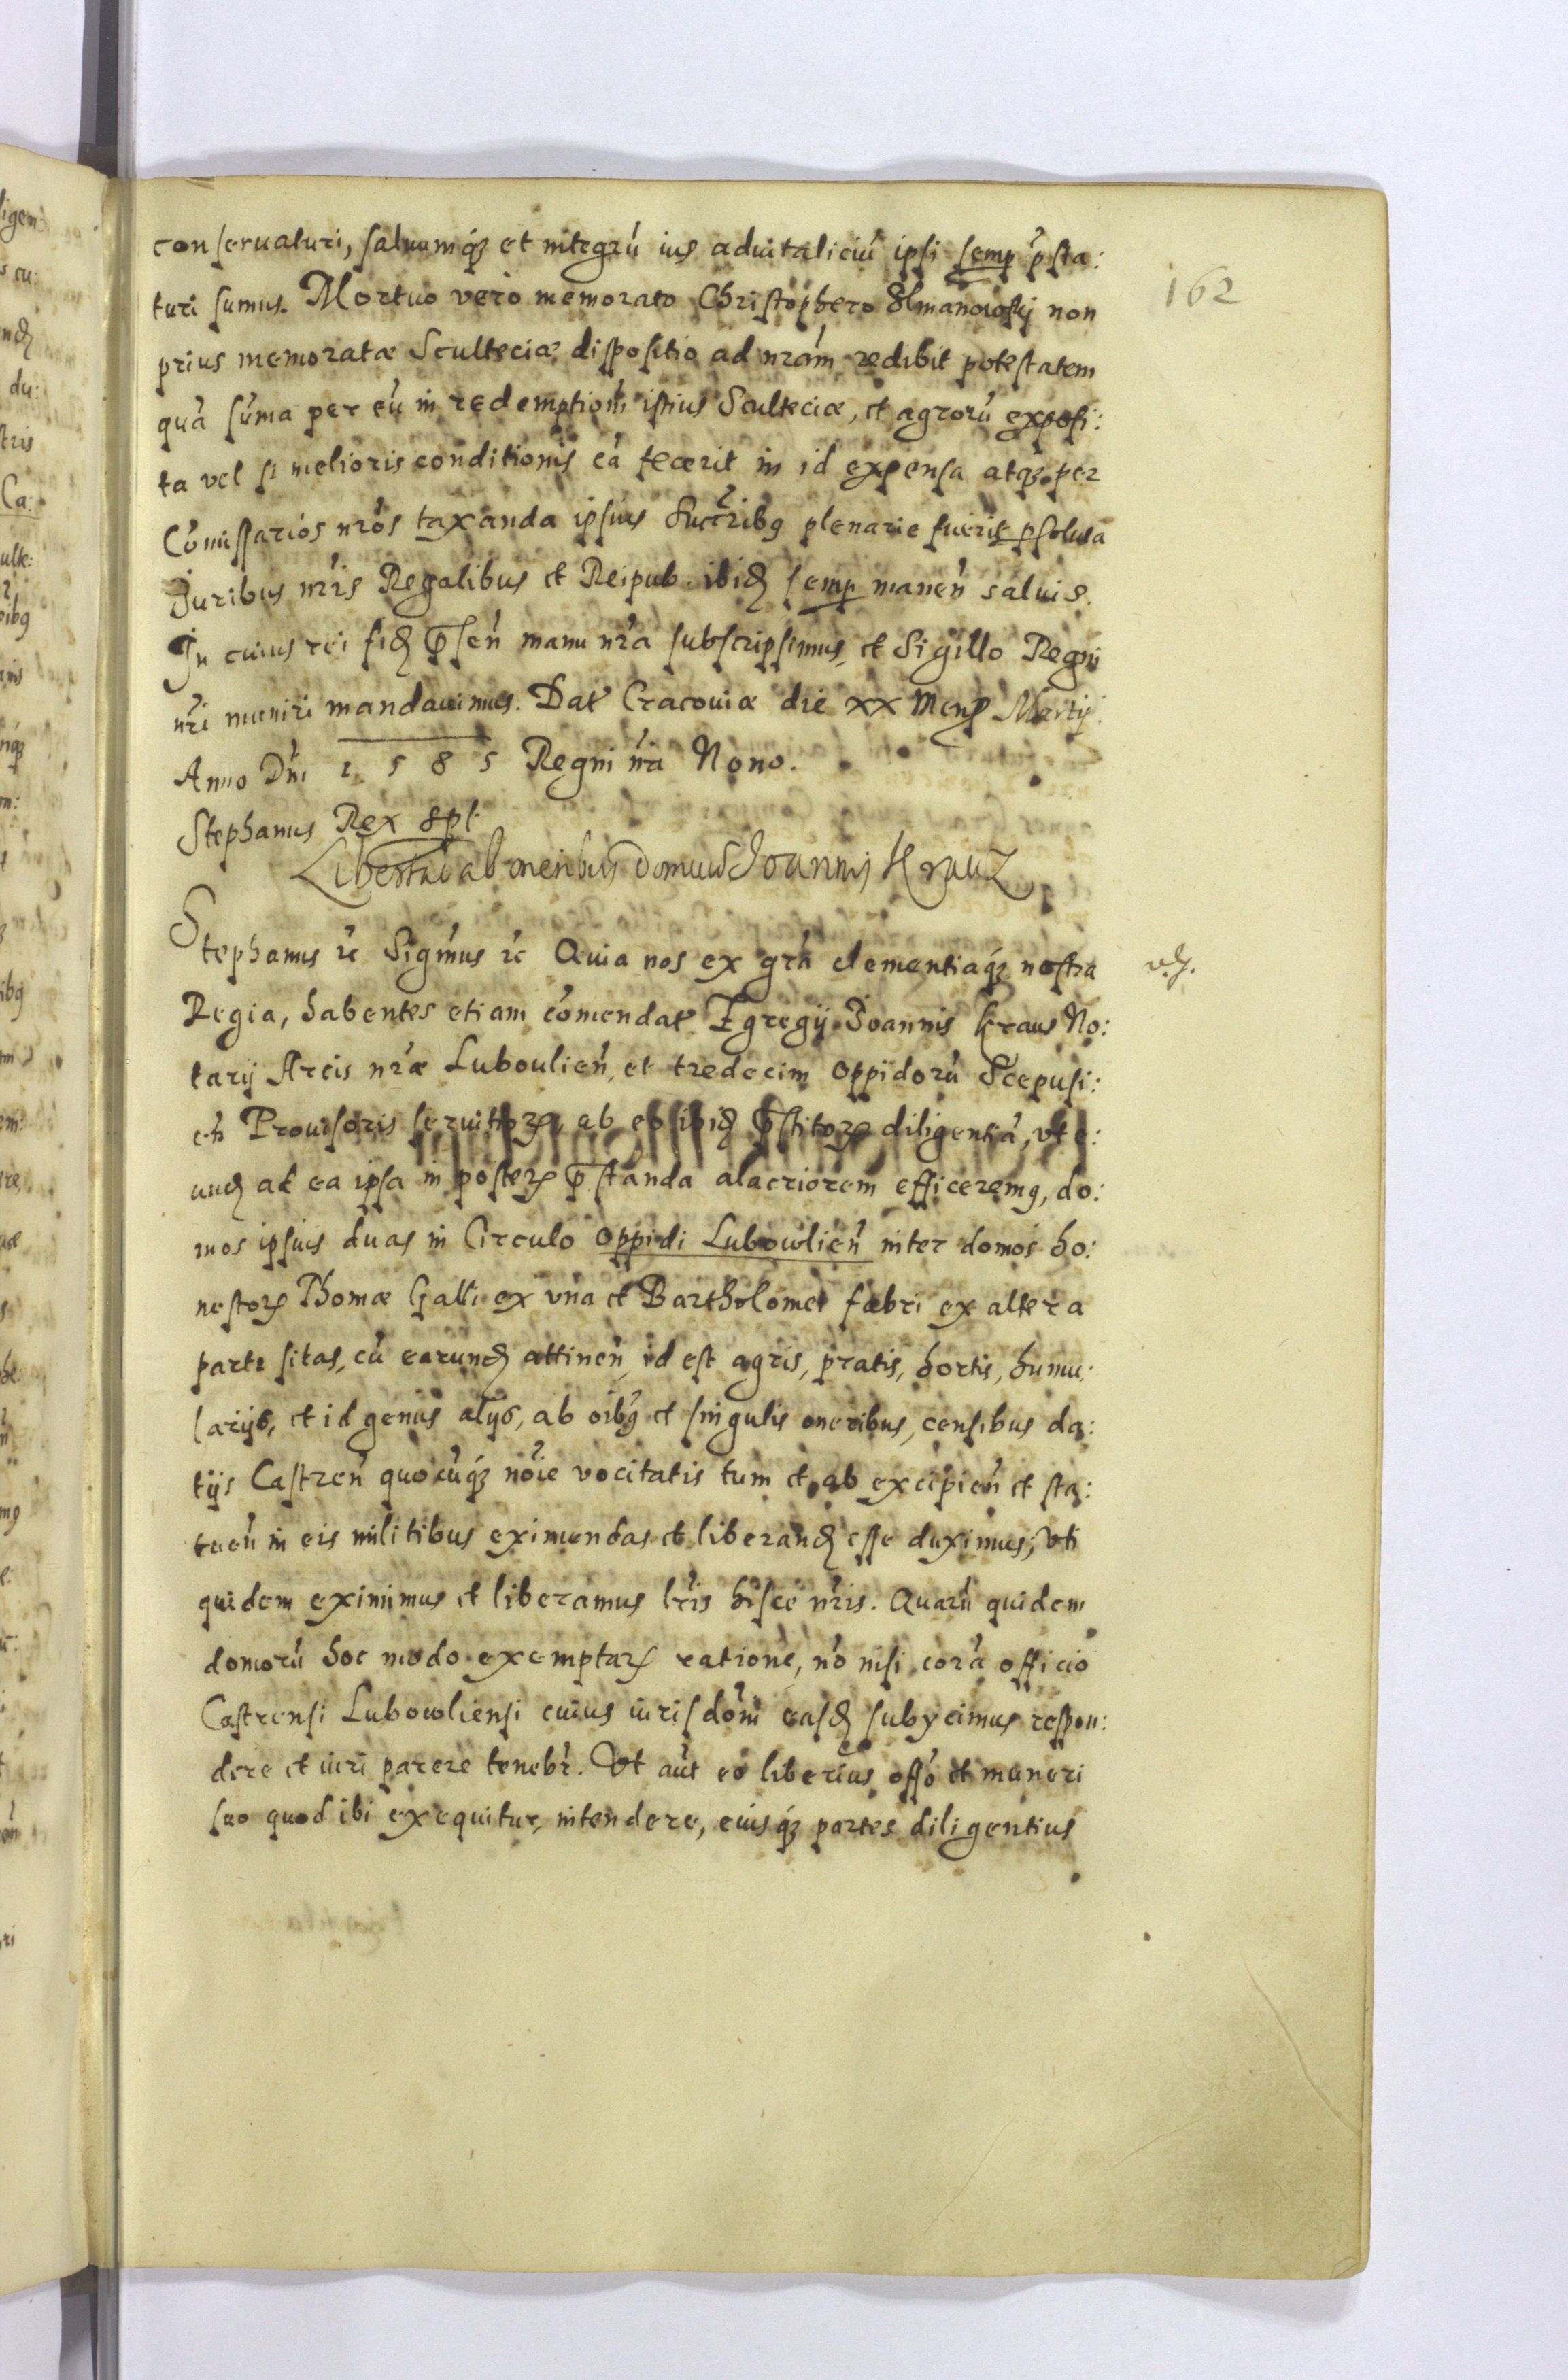 162
conseruaturi, saluumq3 et integrũ ius aduitaliciũ ipsi semp p̃sta:
turi sumus. Mortuo vero memorato Christophero Ulmanowskj non
prius memoratæ Sculteciæ dispositio ad nrãm redibit potestatem
quã sũma per eũ in redemptionẽ istius Scultеciæ, et agrorũ exposi:
ta vel si melioris conditionis eã fecerit in id expensa atq3 per
Cõmissarios nrõs taxanda ipsius Succr̃ibg plenarie fuerit psoluta
Juribus nr̃is Regalibus et Reipub. ibid semp maneñ saluis.
In cuius rei fid p̃señ manu nr̃a subscripsimus, et Sigillo Regni
nr̃i muniri mandauimus. Dat Cracouiæ die xx Mens Martij
Anno Dñi 1585 Regni nr̃i Nono.
Stephanus Rex spt
Libertatio ab oneribus domuum Joannis Krauz
Stephanus rc̃ Sigm̃us rc̃ Quia nos ex grã clementiaq3 nostra
Regia, habentes etiam cõmendat Egregij Joannis Kraus No:
tarij Arcis nr̃æ Luboulieñ, et tredecim oppidorũ Scepusi:
eñ Prouisoris seruitior ab eo ibid p̃stitor diligentiã, vt e:
und ad ea ipsa in poster p̃standa alacriorem efficeremg, do:
mos ipsius duas in Circulo oppidi Lubowlieñ inter domos ho:
nestor Thomæ Galli ex vna et Bartholomei fabri ex altera
parte sitas, cũ earund attineñ, id est agris, pratis, hortis, humu:
larijs, et id genus alijs, ab oĩbg et singulis oneribus, censibus da:
tijs Castreñ quocũq3 nõie vocitatis tum et ab excipieñ et sta:
tueñ in eis militibus eximendas et liberand esse duximus; Vti
quidem eximimus et liberamus lr̃is hisce nr̃is. Quarũ quidem
domorũ hoc modo exemptar ratione, nõ nisi corã officio
Castrensi Lubowliensi cuius iurisdõni easd subycimus respon:
dere et iuri parere tenebr̃. Vt aũt eo liberius offõ et muneri
suo quod ibi exequitur, intendere, eiusq3 partes diligentius